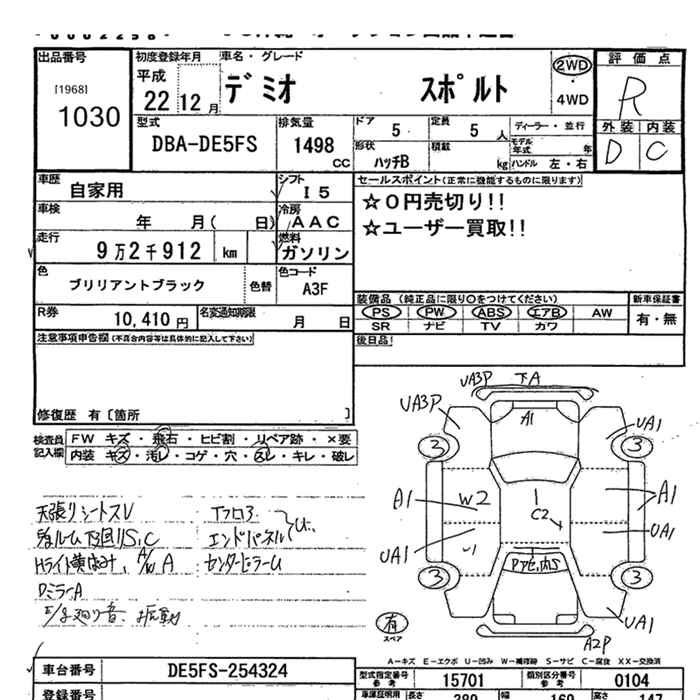 出品番号
[1968]
1030
初度登録年月
平成
22 12 月
車名・グレード
デミオ スポルト
2WD
・
4WD
評価点
R
外装 内装
D C
型式
DBA-DE5FS
排気量
1498
CC
ドア
5
定員
5 人
ディーラー・並行
形状
ハッチB
積載
kg
モデル年式 年
ハンドル 左・右
車歴
自家用
シフト
I 5
車検
年 月( 日)
冷房
AAC
走行
9万2千912 km
燃料
ガソリン
色
ブリリアントブラック
色替
色コード
A3F
R券
10,410 円
名変通知期限
月 日
セールスポイント(正常に機能するものに限ります)
☆0円売切り!!
☆ユーザー買取!!
装備品 (純正品に限り○をつけてください)
PS PW ABS エアB AW
SR ナビ TV カワ
新車保証書
有・無
後日品
注意事項申告欄(不具合内容等は具体的に記入して下さい)
修復歴 有〔箇所 〕
検査員記入欄
FW キズ・飛石・ヒビ割・リペア跡・×要
内装 キズ・汚レ・コゲ・穴・スレ・キレ・破レ
天張りシートスレ
Fフロア
エンドパネル
Hライト黄ばみ、
センターピラーム
DミラーA
UA3P
下A
UA3P
A1
UA1
3
3
A1
W2
C2
A1
UA1
UA1
3
3
UA1
A2P
有
スペア
A-キズ E-エクボ U-凹み W-補修跡 S-サビ C-腐食 XX-交換済
車台番号
DE5FS-254324
登録番号
型式指定番号
参考
15701
類別区分番号
参考
0104
車庫証明用
長さ 389 幅 169 高さ 147